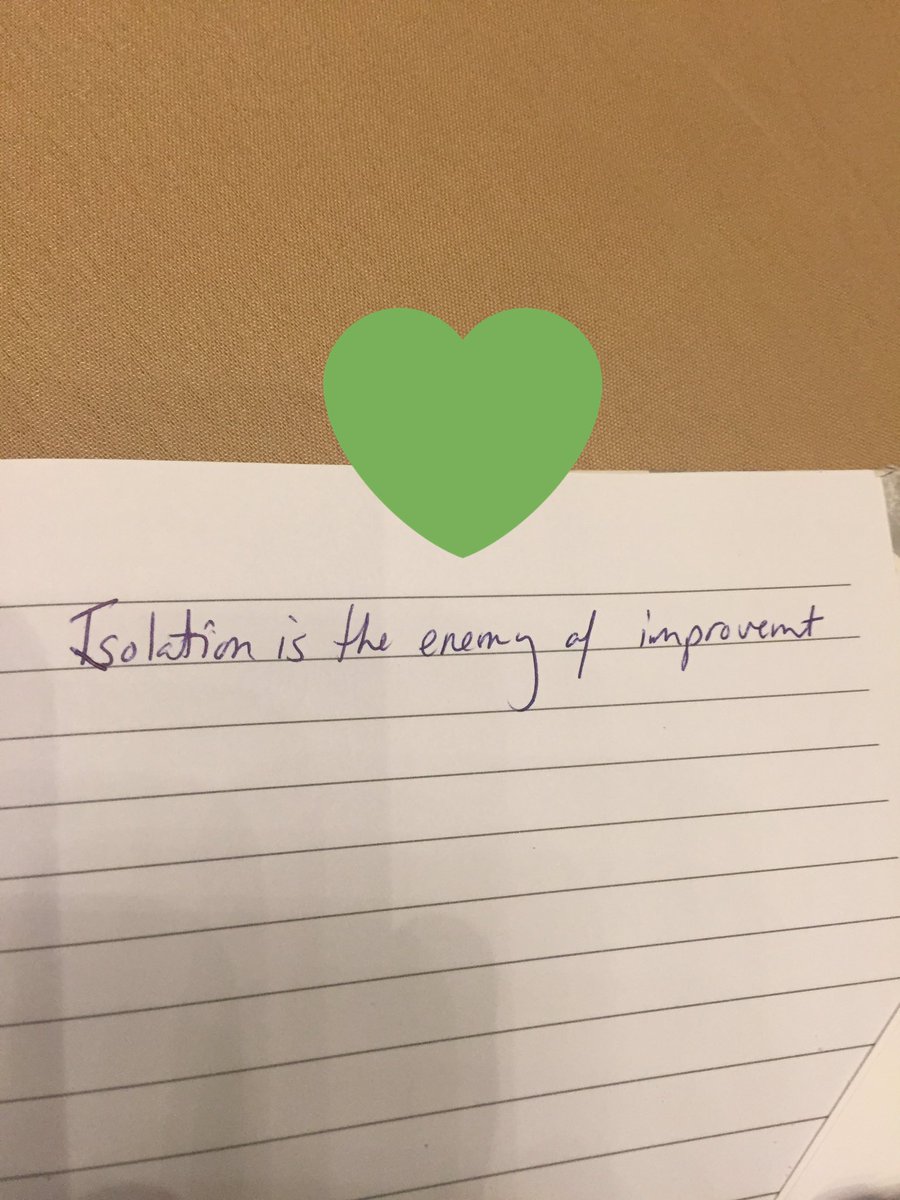 Isolation is the enemy of improvemt